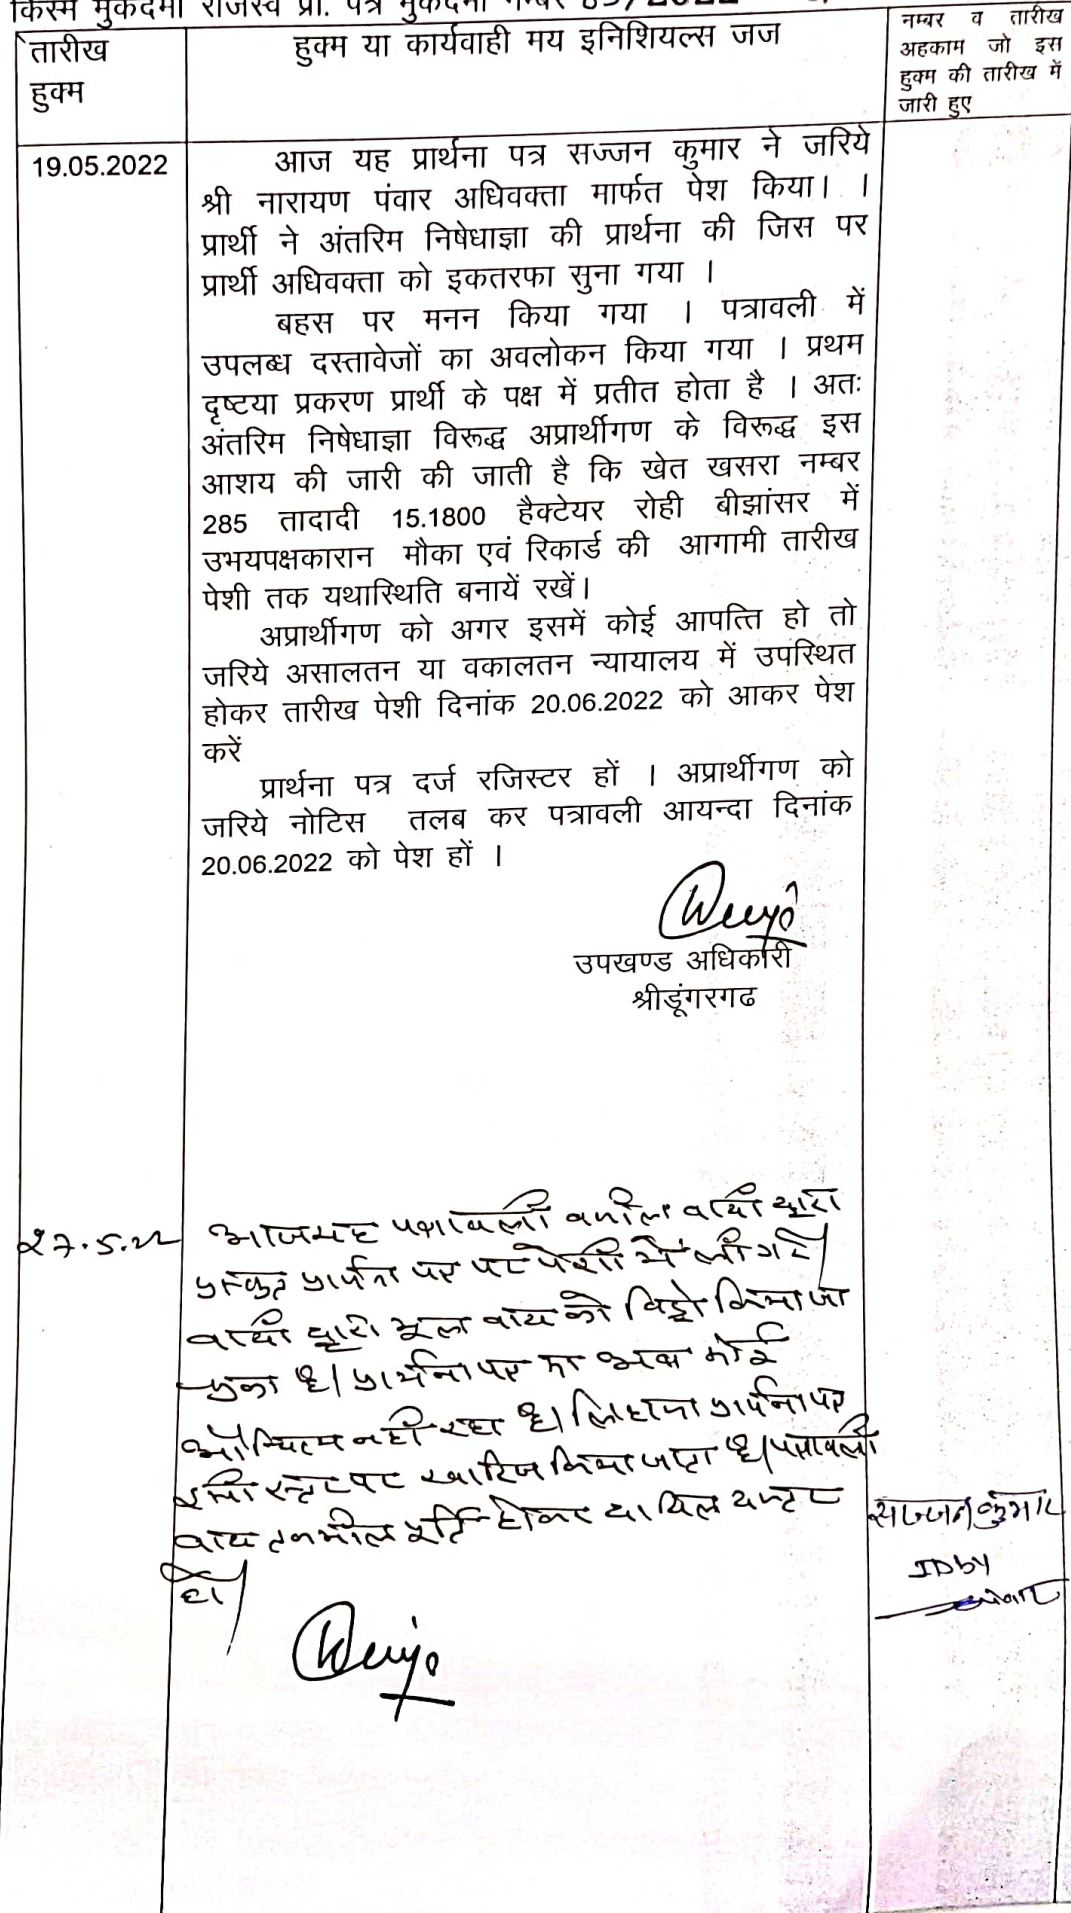 किस्म मुकदमा राजस्व प्रा. पत्र मुकदमा नम्बर
तारीख
हुक्म
हुक्म या कार्यवाही मय इनिशियल्स जज
नम्बर व तारीख
अहकाम जो इस
हुक्म की तारीख में
जारी हुए
19.05.2022
आज यह प्रार्थना पत्र सज्जन कुमार ने जरिये
श्री नारायण पंवार अधिवक्ता मार्फत पेश किया। ।
प्रार्थी ने अंतरिम निषेधाज्ञा की प्रार्थना की जिस पर
प्रार्थी अधिवक्ता को इकतरफा सुना गया ।
बहस पर मनन किया गया । पत्रावली में
उपलब्ध दस्तावेजों का अवलोकन किया गया । प्रथम
दृष्टया प्रकरण प्रार्थी के पक्ष में प्रतीत होता है । अतः
अंतरिम निषेधाज्ञा विरूद्ध अप्रार्थीगण के विरूद्ध इस
आशय की जारी की जाती है कि खेत खसरा नम्बर
285 तादादी 15.1800 हैक्टेयर रोही बीझांसर में
उभयपक्षकारान मौका एवं रिकार्ड की आगामी तारीख
पेशी तक यथास्थिति बनायें रखें।
अप्रार्थीगण को अगर इसमें कोई आपत्ति हो तो
जरिये असालतन या वकालतन न्यायालय में उपस्थित
होकर तारीख पेशी दिनांक 20.06.2022 को आकर पेश
करें
प्रार्थना पत्र दर्ज रजिस्टर हों । अप्रार्थीगण को
जरिये नोटिस तलब कर पत्रावली आयन्दा दिनांक
20.06.2022 को पेश हों ।
उपखण्ड अधिकारी
श्रीडूंगरगढ
27.5.22
आज यह पत्रावली वकील वादी द्वारा
प्रस्तुत प्रार्थना पत्र पर पेशी में ली गई।
वादी द्वारा मूल वाद को विड्रो किया जा
चुका है। प्रार्थना पत्र का अब कोई
औचित्य नहीं रहा है। लिहाजा प्रार्थना पत्र
इसी स्टेज पर खारिज किया जाता है। पत्रावली
बाद तकमील पूर्ति होकर दाखिल दफ्तर
हो।
सज्जन कुमार
ID by